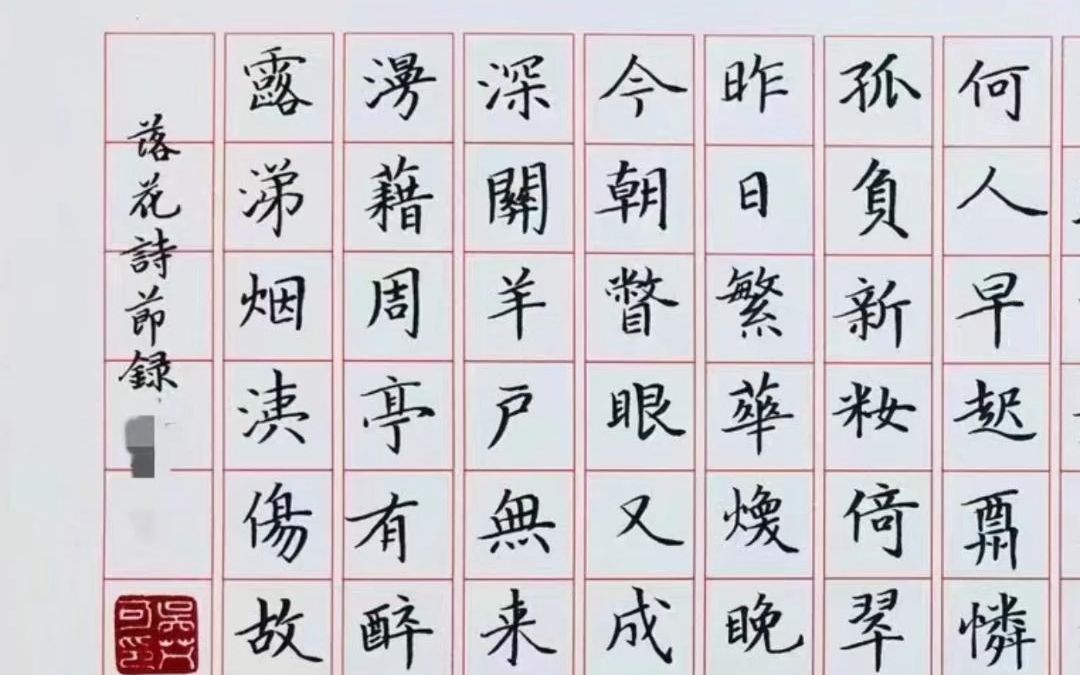 何人早起酬憐
孤負新籹倚翠
昨日繁華煥晚
今朝瞥眼又成
深關羊户無来
漫藉周亭有醉
露涕烟洟傷故
落花詩莭録